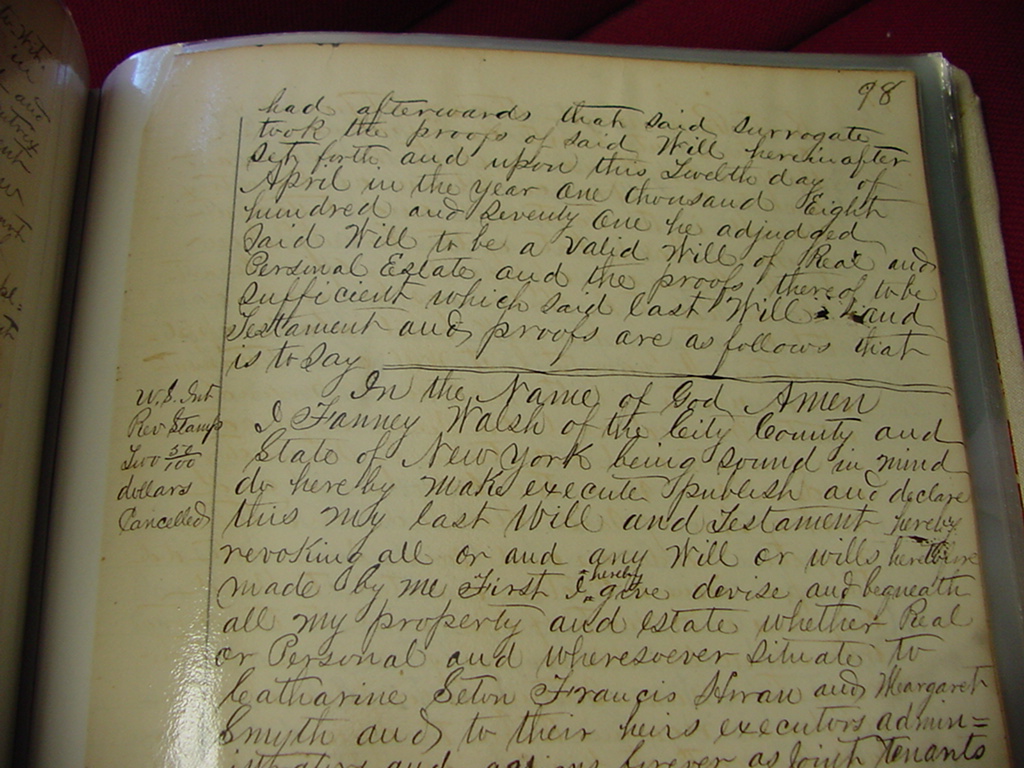 98
had afterwards that said surrogate
took the proofs of said Will hereinafter
set forth and upon this Twelfth day of
April in the year one thousand Eight
hundred and Seventy one he adjudged
Said Will to be a valid Will of Real and
Personal Estate and the proofs thereof to be
Sufficient which said last Will and
Testament and proofs are as follows that
is to say
In the Name of God Amen
U.S. Int
Rev Stamp
Two 50/100
dollars
Cancelled
I Fanney Walsh of the City County and
State of New York being sound in mind
do hereby make execute publish and declare
this my last Will and Testament hereby
revoking all or and any Will or wills heretofore
made by me First I hereby give devise and bequeath
all my property and estate whether Real
or Personal and wheresoever situate to
Catharine Seton Francis and Margaret
Smyth and to their heirs executors admin=
istrators and assigns forever as Joint Tenants